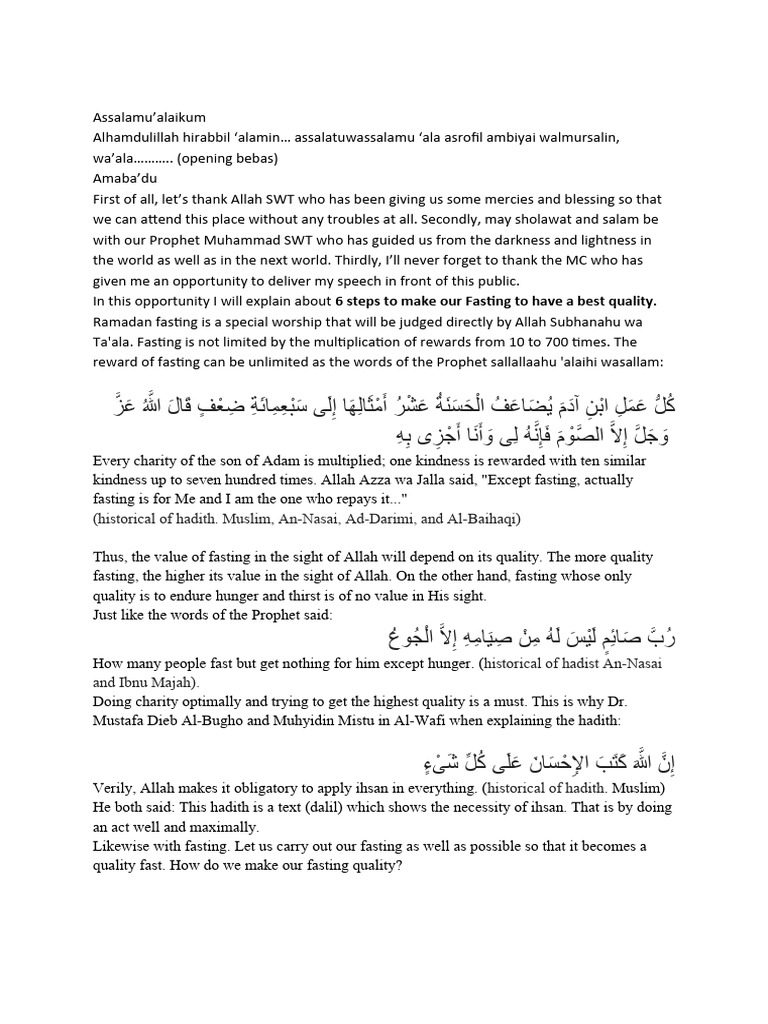 Assalamu’alaikum
Alhamdulillah hirabbil ‘alamin… assalatuwassalamu ‘ala asrofil ambiyai walmursalin,
wa’ala……….. (opening bebas)
Amaba’du
First of all, let’s thank Allah SWT who has been giving us some mercies and blessing so that
we can attend this place without any troubles at all. Secondly, may sholawat and salam be
with our Prophet Muhammad SWT who has guided us from the darkness and lightness in
the world as well as in the next world. Thirdly, I’ll never forget to thank the MC who has
given me an opportunity to deliver my speech in front of this public.
In this opportunity I will explain about 6 steps to make our Fasting to have a best quality.
Ramadan fasting is a special worship that will be judged directly by Allah Subhanahu wa
Ta'ala. Fasting is not limited by the multiplication of rewards from 10 to 700 times. The
reward of fasting can be unlimited as the words of the Prophet sallallaahu 'alaihi wasallam:
كُلُّ عَمَلِ ابْنِ آدَمَ يُضَاعَفُ الْحَسَنَةُ عَشْرُ أَمْثَالِهَا إِلَى سَبْعِمِائَةِ ضِعْفٍ قَالَ اللَّهُ عَزَّ
وَجَلَّ إِلاَّ الصَّوْمَ فَإِنَّهُ لِى وَأَنَا أَجْزِى بِهِ
Every charity of the son of Adam is multiplied; one kindness is rewarded with ten similar
kindness up to seven hundred times. Allah Azza wa Jalla said, "Except fasting, actually
fasting is for Me and I am the one who repays it..."
(historical of hadith. Muslim, An-Nasai, Ad-Darimi, and Al-Baihaqi)
Thus, the value of fasting in the sight of Allah will depend on its quality. The more quality
fasting, the higher its value in the sight of Allah. On the other hand, fasting whose only
quality is to endure hunger and thirst is of no value in His sight.
Just like the words of the Prophet said:
رُبَّ صَائِمٍ لَيْسَ لَهُ مِنْ صِيَامِهِ إِلاَّ الْجُوعُ
How many people fast but get nothing for him except hunger. (historical of hadist An-Nasai
and Ibnu Majah).
Doing charity optimally and trying to get the highest quality is a must. This is why Dr.
Mustafa Dieb Al-Bugho and Muhyidin Mistu in Al-Wafi when explaining the hadith:
إِنَّ اللَّهَ كَتَبَ الإِحْسَانَ عَلَى كُلِّ شَىْءٍ
Verily, Allah makes it obligatory to apply ihsan in everything. (historical of hadith. Muslim)
He both said: This hadith is a text (dalil) which shows the necessity of ihsan. That is by doing
an act well and maximally.
Likewise with fasting. Let us carry out our fasting as well as possible so that it becomes a
quality fast. How do we make our fasting quality?